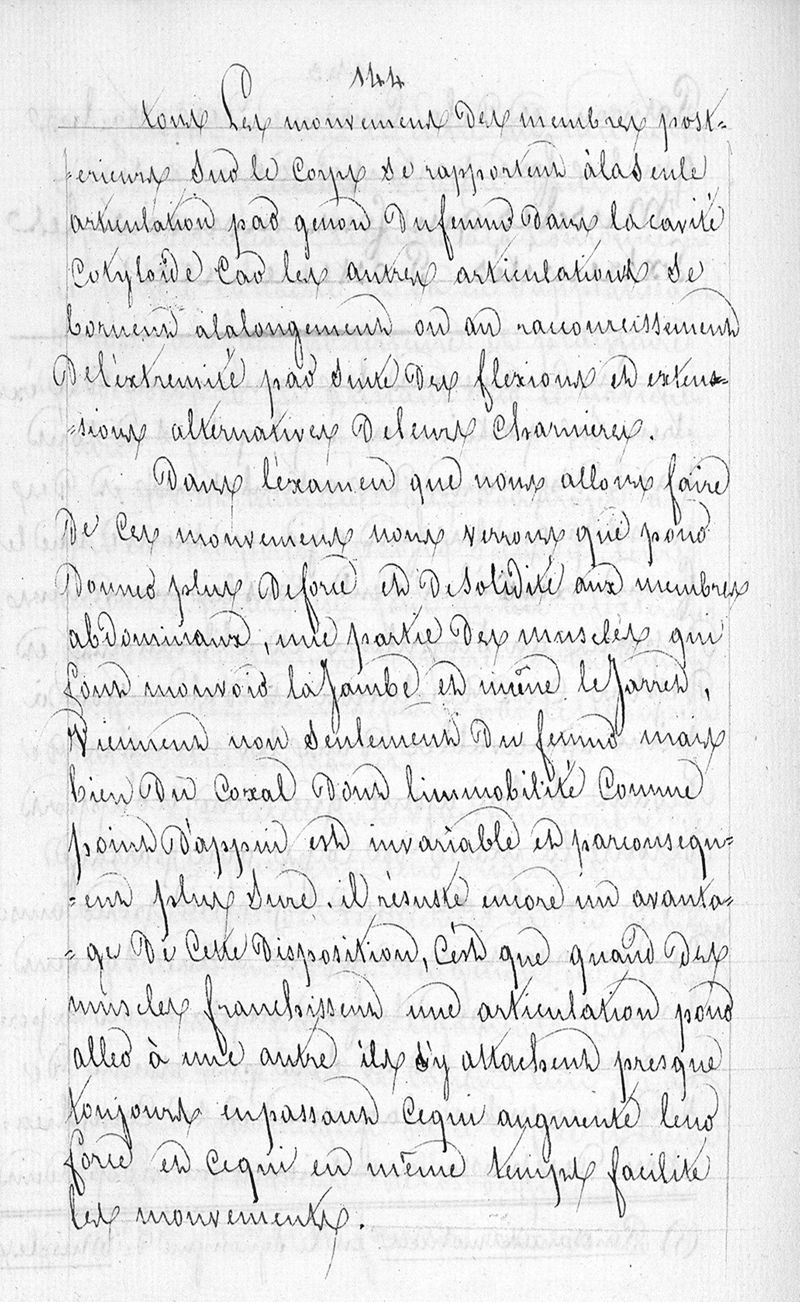 144
tous Les mouvemens des membres post-
-erieurs sur le corps se rapportent àlaseule
articulation par genou dufemur dans lacavité
Cotyloïde Car les autres articulations se
bornent alalongement ou au raccourcissement
Del'extremité par suite des flexions et exten-
-sions alternatives deleurs charnieres.
Dans l'examen que nous allons faire
De ces mouvemens nous verrons que pour
donner plus deforce et desolidité aux membres
abdominaux, une partie des muscles qui
font mouvoir la Jambe et même le Jarret,
Viennent non seulement du femur mais
bien du Coxal dont l'immobilité comme
point d'appui est invariable et parconsequ-
-ent plus sure. il résulte encore un avanta-
-ge de cette disposition, c'est que quand des
muscles franchissent une articulation pour
aller à une autre ils s'y attachent presque
toujours enpassant cequi augmente leur
force et cequi en même temps facilite
les mouvements.